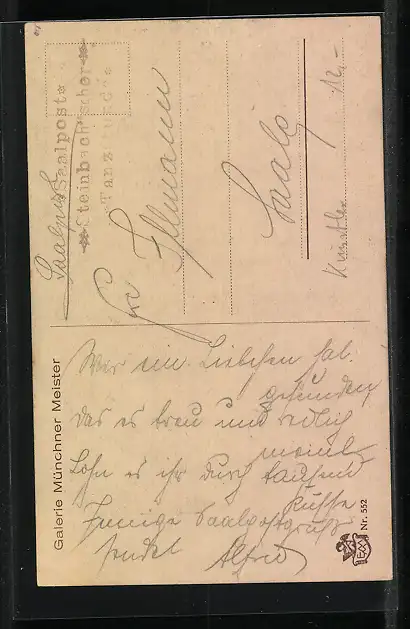 Saalpost
Saalpost
Steinbach'scher
Tanz
Frl
Illmann
Saalg
Künstler 12,-
Galerie Münchner Meister
Wer ein Liebchen hat
gefunden,
das es treu und redlich
meint
Lohn es ihr durch tausend
Küsse
Innige Saalpostgrüße
sendet Alfred
Nr. 552